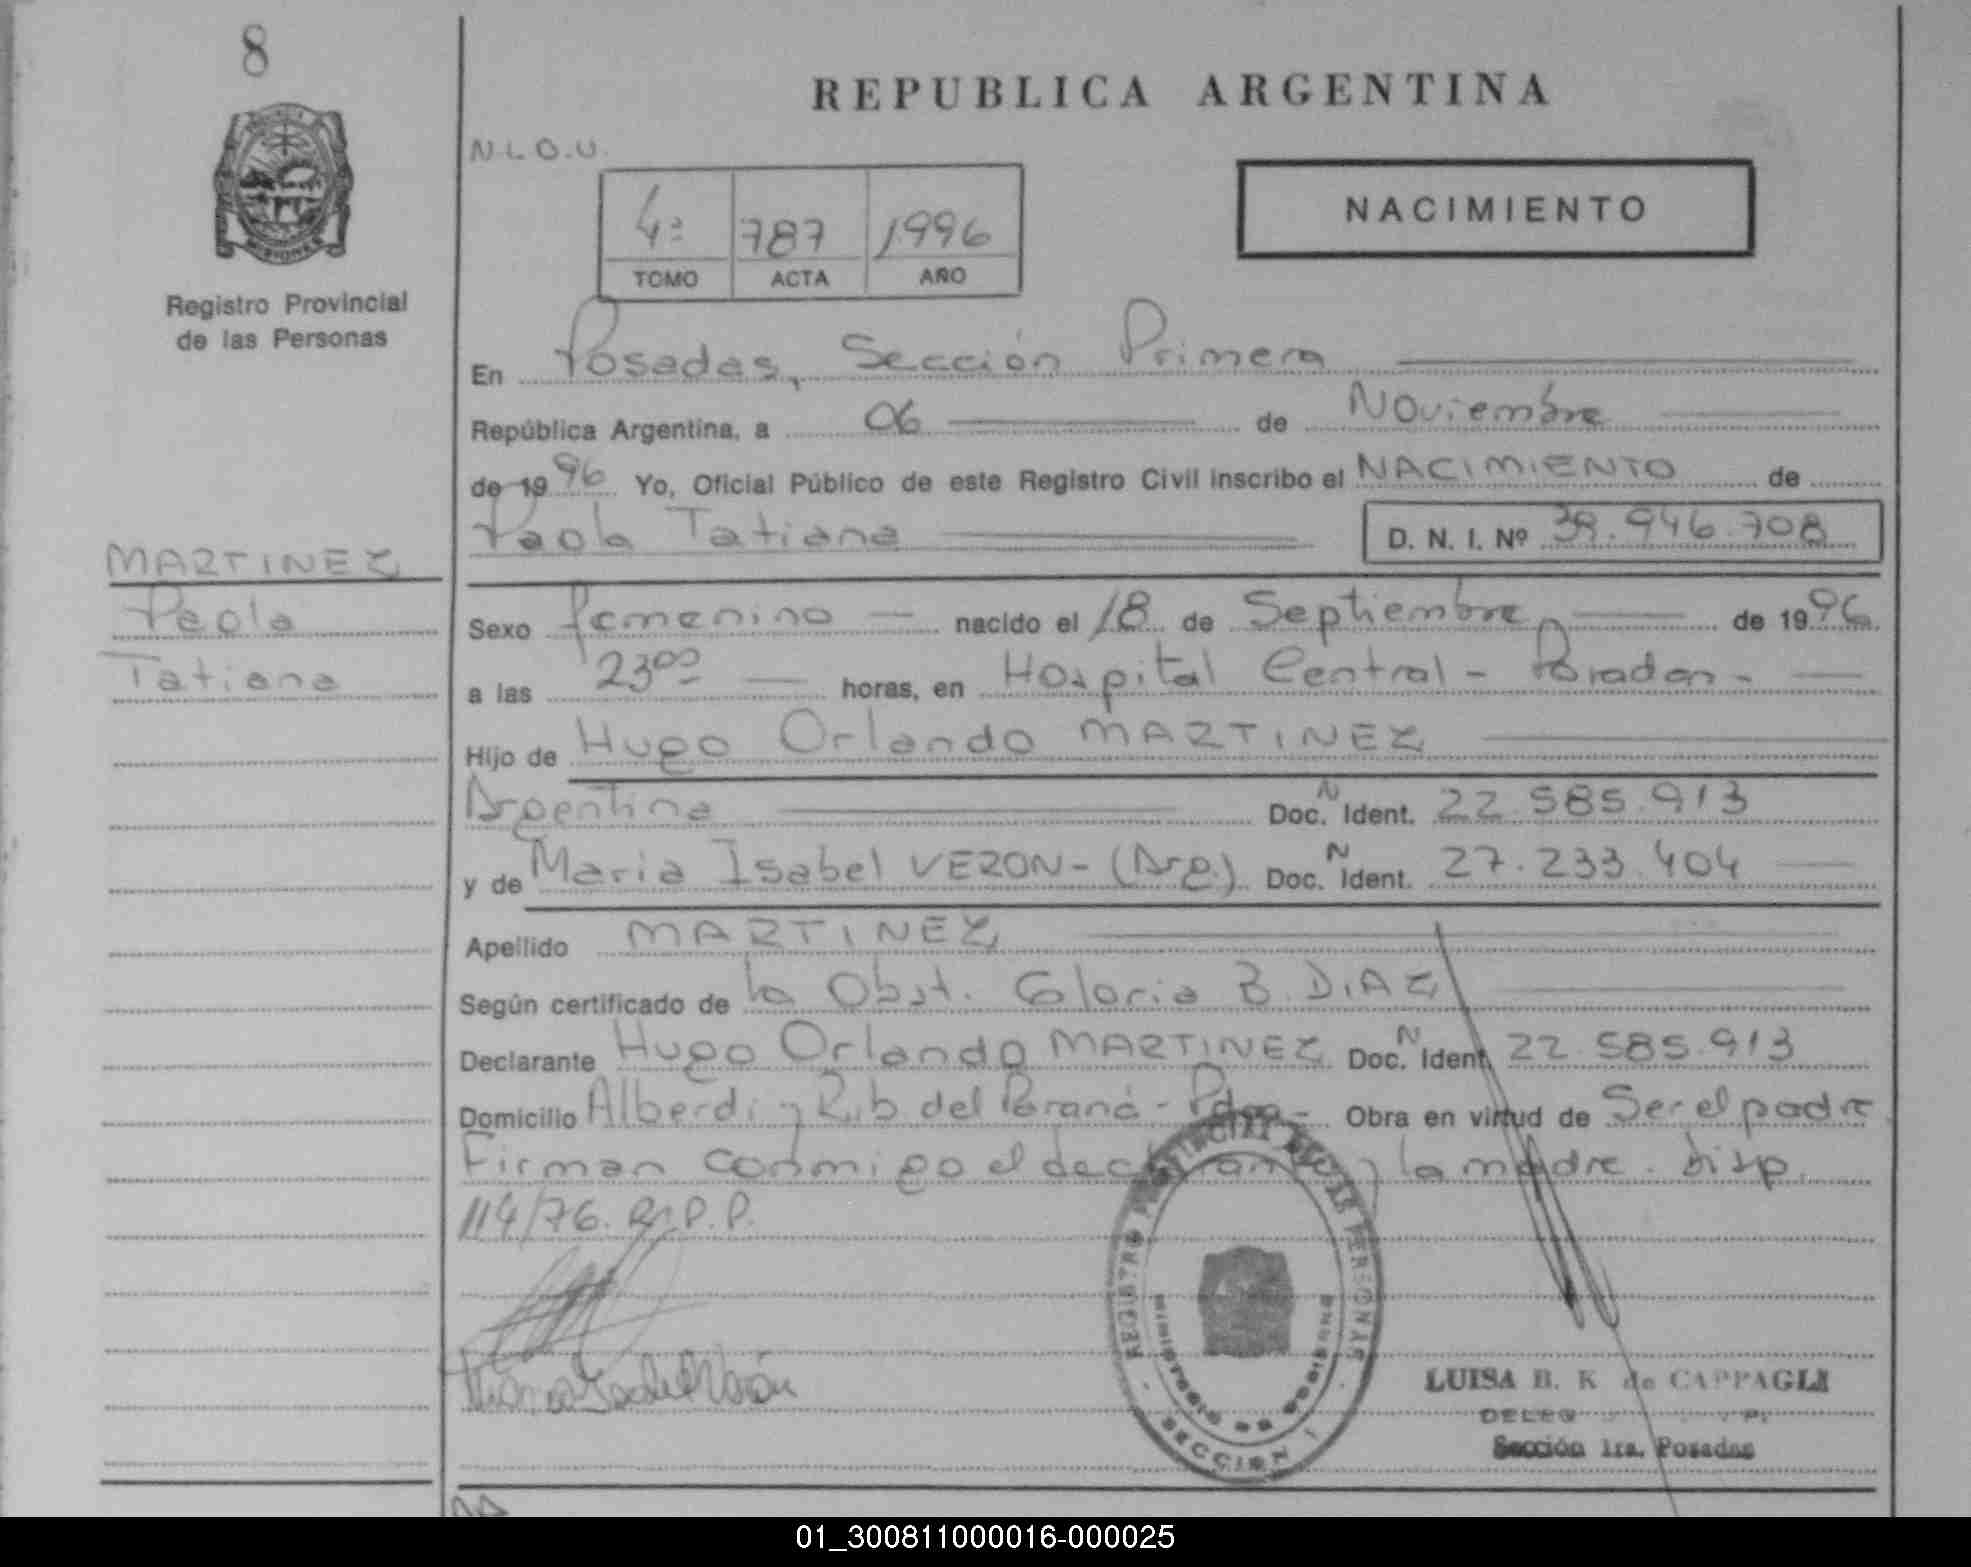 8
REPUBLICA ARGENTINA
N.L.O.U.
4º 787 1996
TOMO ACTA AÑO
NACIMIENTO
MISIONES
Registro Provincial
de las Personas
En Posadas, Sección Primera
República Argentina, a 06 de Noviembre
de 1996 Yo, Oficial Público de este Registro Civil inscribo el NACIMIENTO de
Paola Tatiana D. N. I. Nº 39.946.708
MARTINEZ
Paola
Tatiana
Sexo femenino nacido el 18 de Septiembre de 1996
a las 23ºº horas, en Hospital Central - Posadas -
Hijo de Hugo Orlando MARTINEZ
Argentina Doc. N Ident. 22.585.913
y de Maria Isabel VERON - (Arg.) Doc. N Ident. 27.233.404
Apellido MARTINEZ
Según certificado de la Obst. Gloria B. DIAZ
Declarante Hugo Orlando MARTINEZ Doc. N Ident. 22.585.913
Domicilio Alberdi y Rib. del Paraná - Pdas - Obra en virtud de Ser el padre.
Firman conmigo el declarante y la madre. Disp.
114/76. R.P.P.
Maria Isabel Verón
REGISTRO PROVINCIAL DE LAS PERSONAS
MINISTERIO DE GOBIERNO
SECCION 1
LUISA B. K de CAPPAGLI
Sección 1ra. Posadas
01_300811000016-000025